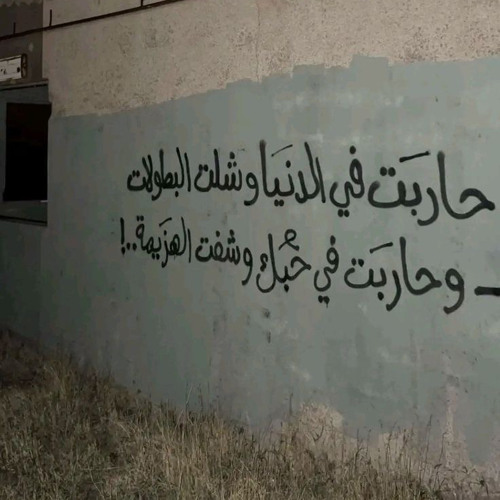 حاربَت في الدنيَا وشلت البطولات
- وحاربَت في حُبك وشفت الهزيَمة..!